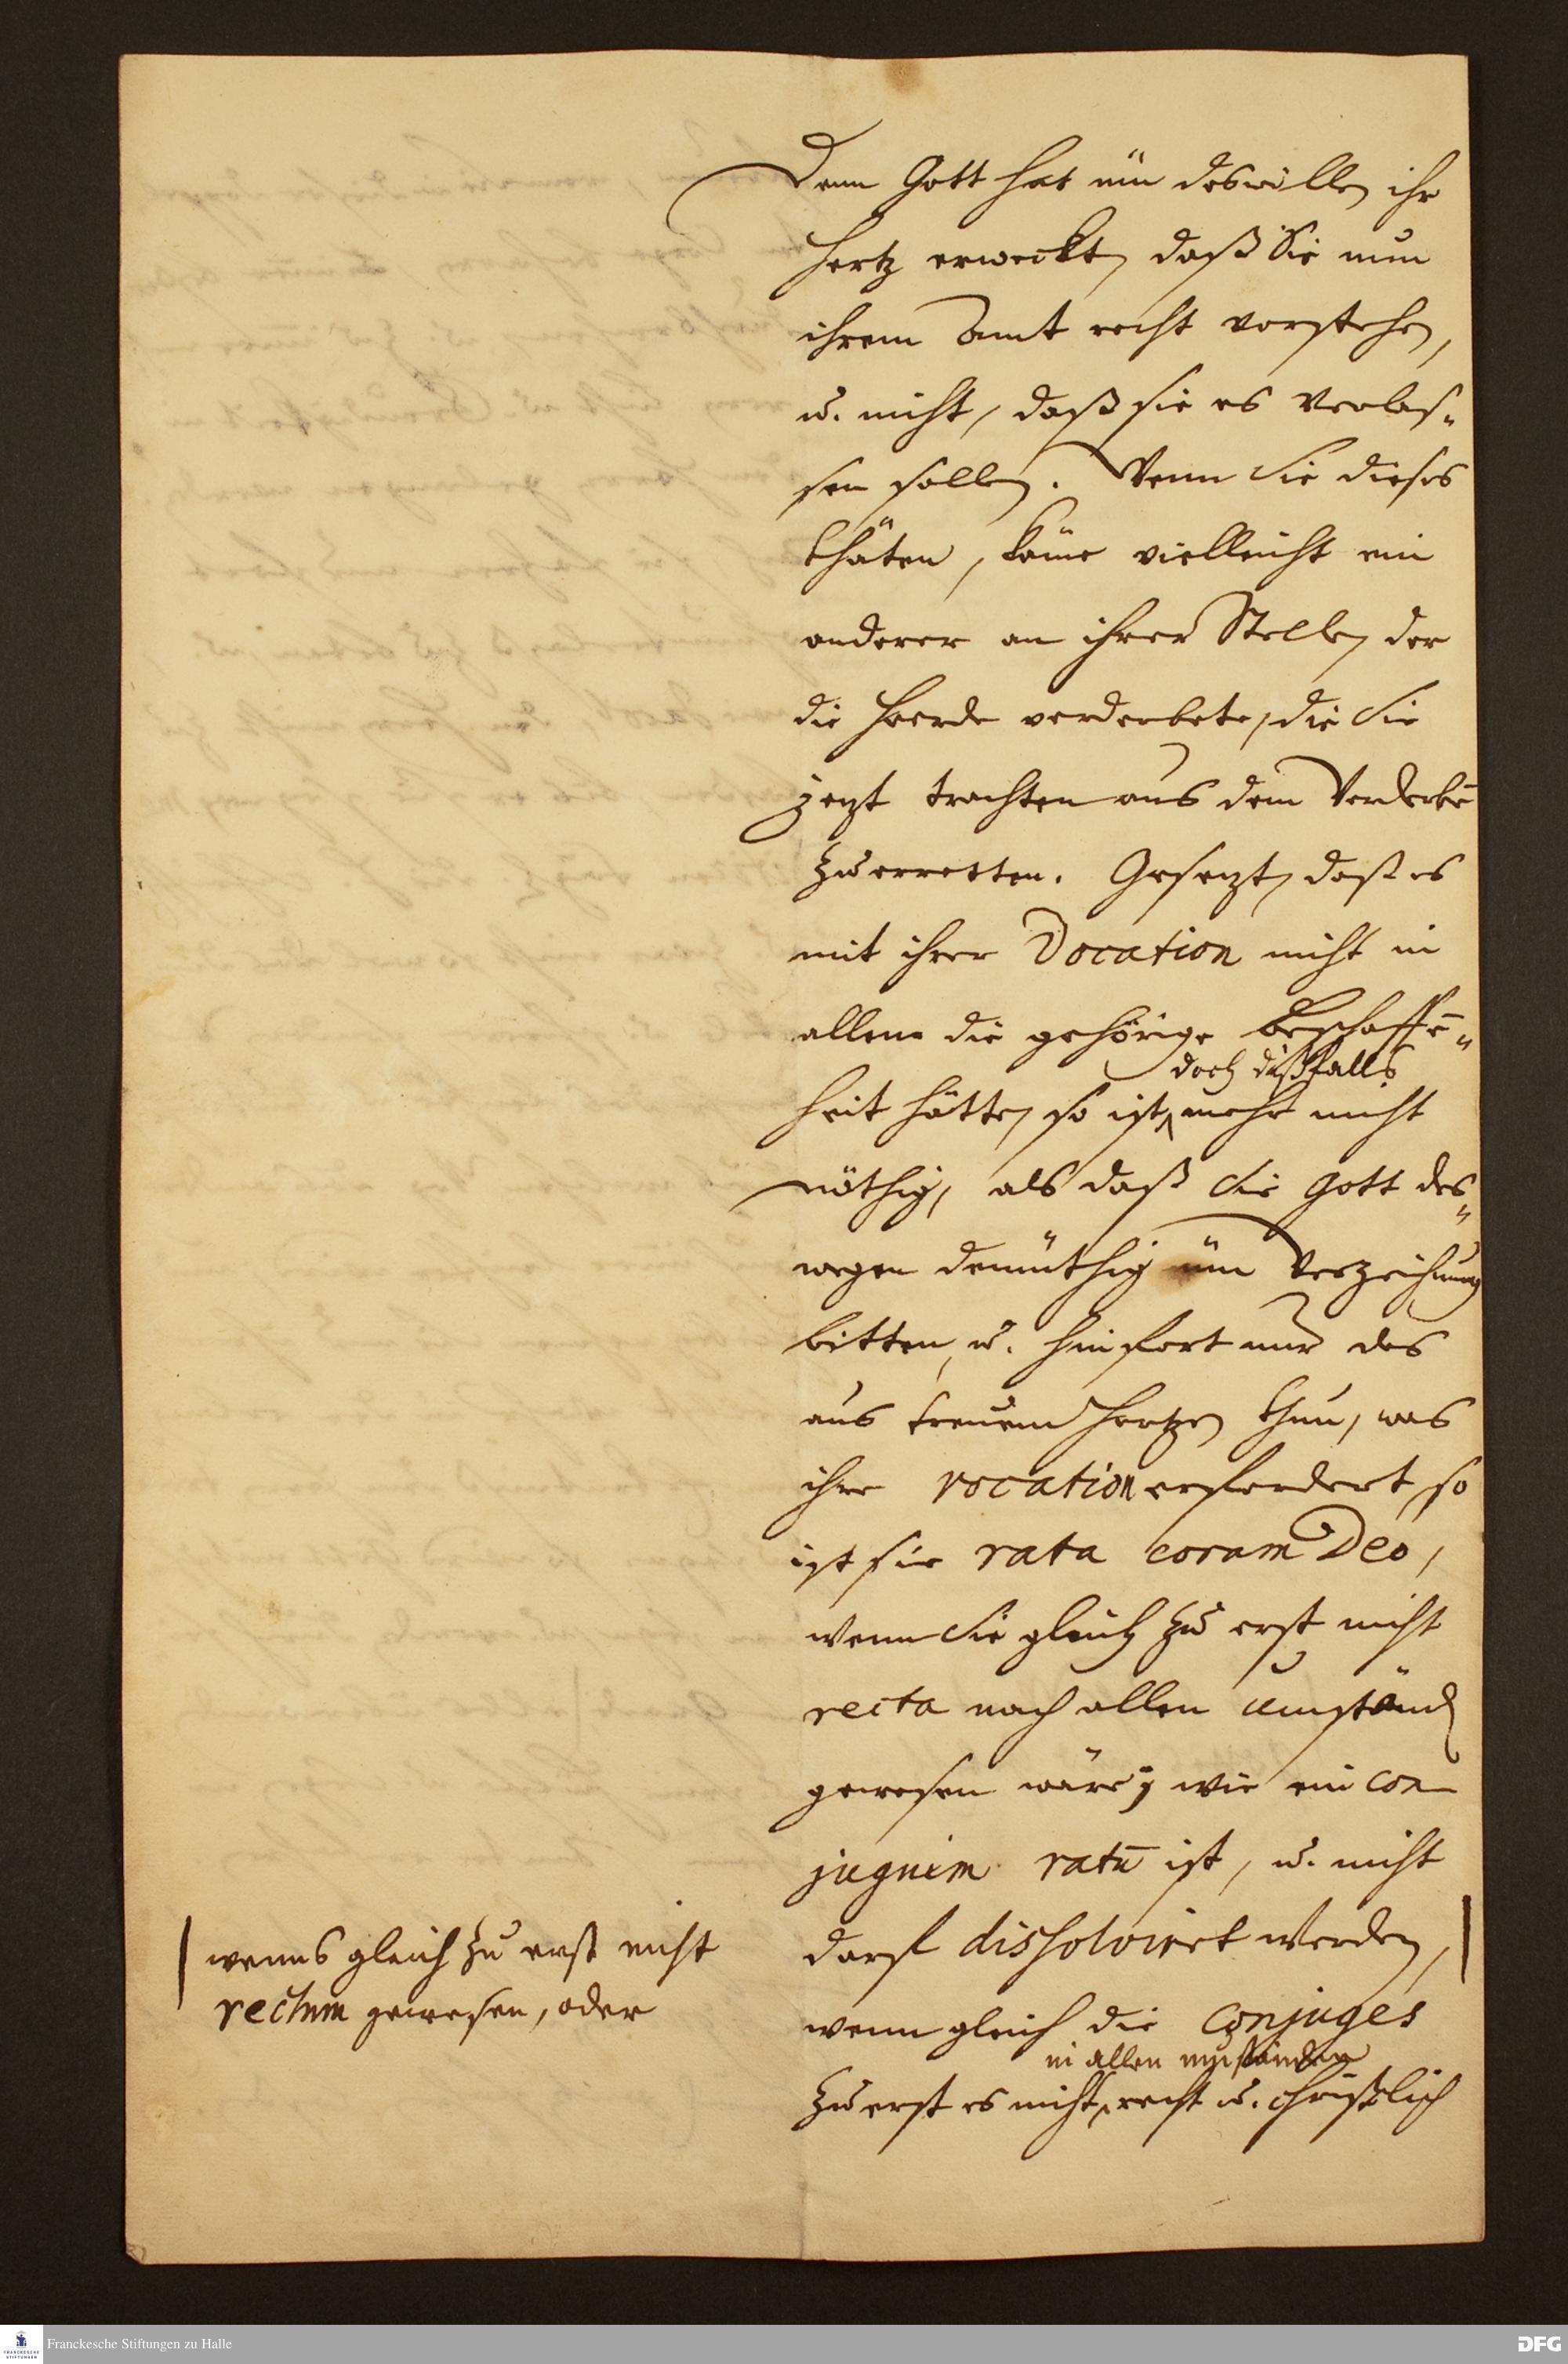 Denn Gott hat üm deswillen ihr
Hertz erweckt, daß Sie nun
ihrem Amt recht vorstehen,
u. nicht, daß sie es verlas-
sen sollen. Wenn Sie dieses
thäten, käme vielleicht ein
anderer an ihrer Stelle, der
die Heerde verderbete, die Sie
jezt trachten aus dem Verderbē
zu erretten. Gesezt, daß es
mit ihrer Vocation nicht in
allem die gehörige Beschaffē-
doch dißfalls
heit hätte, so ist mehr nicht
nöthig, als daß Sie Gott des-
wegen demüthig üm Verzeihung
bitten, u. hinfort nur das
aus treuem Hertzen thun, was
ihre vocation erfordert, so
ist sie rata coram Deo,
wenn Sie gleich zu erst nicht
recta nach allen Umständ
gewesen wäre; wie ein con
jugium ratū ist, u. nicht
darf dissolviret werden,
wenns gleich zu erst nicht
rectum gewesen, oder
wenn gleich die Conjuges
in allen umständen
zu erst es nicht recht u. christlich
Franckesche Stiftungen zu Halle
DFG